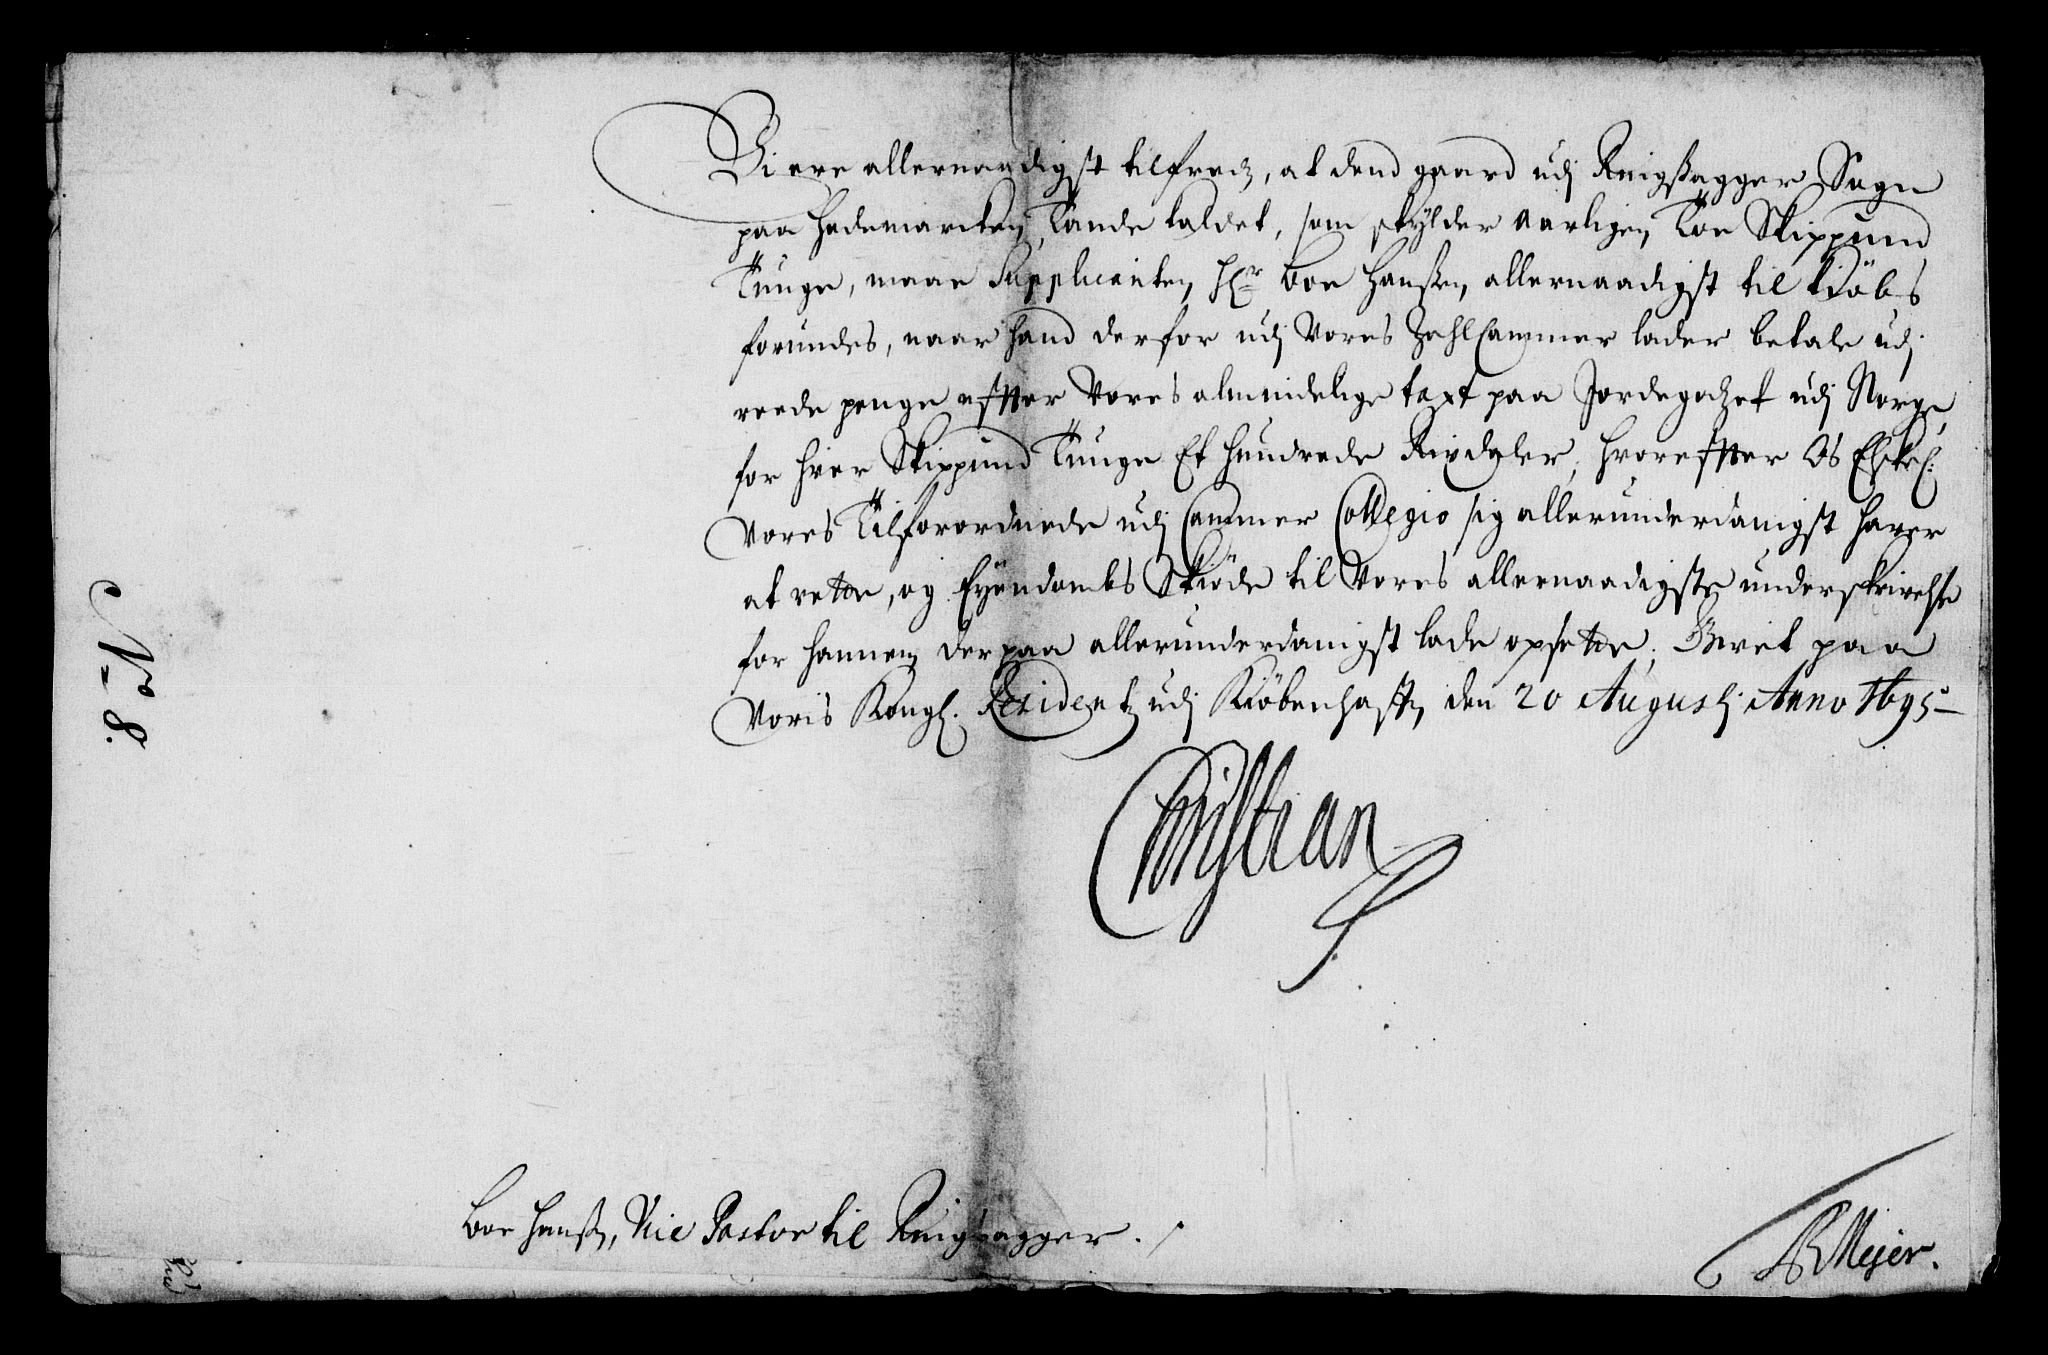 Vi ere allernaadigst tilfredz, at dend gaard udj Ringßagger Sogn
paa Hedemarcken, Tande kaldet, som skylder aarligen Toe Skippund
Tunge, maae Supplicanten, Hr Boe Hanßen, allernaadigst til kiöbs
forundes, naar hand derfor udj Vores ZahlCammer lader betale udj
reede penge effter Vores almindelige taxt paa Jordegodzet udj Norge,
for hver Skippund Tunge Et hundrede Rixdaler, hvoreffter Os Elskel:
Vores Tilforordnede udj Cammer Collegio sig allerunderdanigst haver
at rette, og Eyendombs Skiöde til Vores allernaadigste underskrivelse
for hannem derpaa allerunderdanigst lade opsette. Givet paa
Voris Kongl. Residentz udj Kiöbenhaffn, den 20 Augustj Anno 1695
Christian
No 8.
Boe Hanß, Vic Pastor til Ringsagger.
Meÿer.